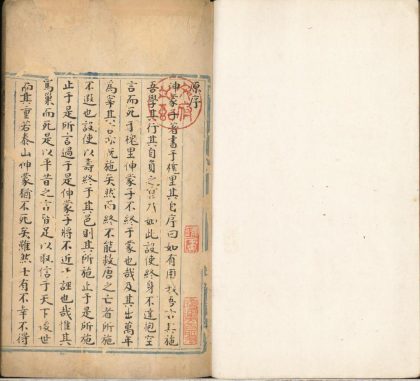 原序
伸蒙子著書于槐里其自序曰如有用我吾言其施
吾學其行其自負之㫖如此設使終身不達抱空
言而死于槐里伸蒙子不終于蒙也哉及其出萬年
爲宰其言亦既施矣然而終不能救唐之亡者所施
不遐也設使以壽終于其邑則其所施止于是所施
止于是所言過于是伸蒙子將不近于誣也哉惟其
罵巢而死是以平昔之言皆足以取信于天下後世
而其重若泰山伸蒙猶不死矣雖然士有不幸不得